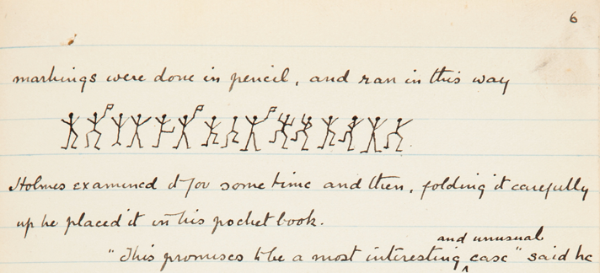 6
markings were done in pencil, and ran in this way
Holmes examined it for some time and then, folding it carefully
up he placed it in his pocket book.
and unusual
"This promises to be a most interesting ‸ case" said he